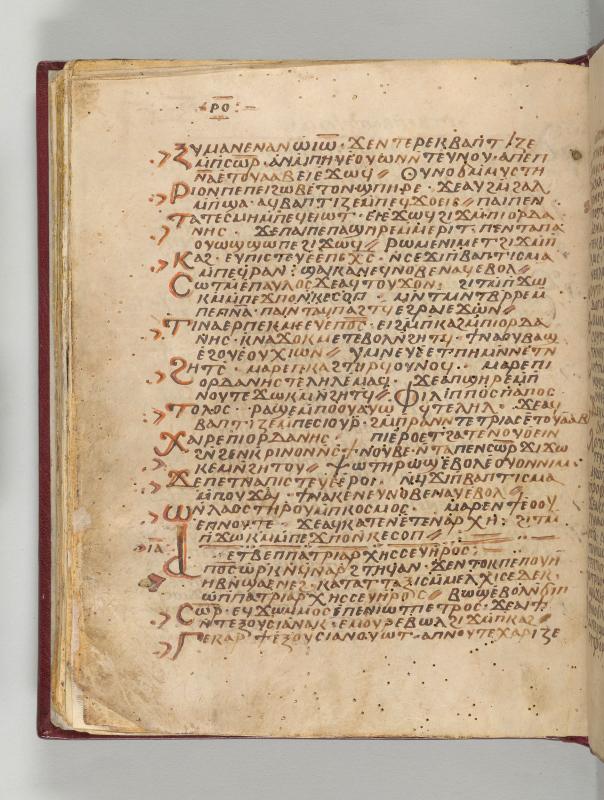 ⲣⲟ
ⲍⲩⲙⲁⲛⲉⲛⲁⲛ ⲱⲓⲱ̅ · ϫⲉⲛⲧⲉⲣⲉⲕⲃⲁⲡⲧⲓⲍⲉ
ⲙ̅ⲡⲥⲱ̅ⲣ · ⲁⲛⲙ̅ⲡⲏⲩⲉ ⲟⲩⲱⲛ ⲛⲧⲉⲩⲛⲟⲩ · ⲁⲡⲉⲡ̅
ⲛ̅ⲁ ⲉⲧⲟⲩⲁⲁⲃ ⲉⲓ ⲉϫⲱϥ ⫽ ⲟⲩⲛⲟϭ ⲙ̅ⲙⲩⲥⲧⲏ
ⲣⲓⲟⲛ ⲡⲉ ⲡⲉⲓϩⲱⲃ ⲉⲧⲟⲛ̅ϣⲡⲏⲣⲉ · ϫⲉⲁⲩϩⲙ̅ϩⲁⲗ
ⲙ̅ⲡϣⲁ · ⲁϥⲃⲁⲡⲧⲓⲍⲉ ⲙ̅ⲡⲉϥϫⲟⲉⲓⲥ ⫽ ⲡⲁⲓ ⲡⲉⲛ
ⲧⲁⲧⲉⲥⲙⲏ ⲙ̅ⲡⲉϥⲉⲓⲱⲧ · ⲉⲓ ⲉϫⲱϥ ϩⲓϫⲙ̅ⲡⲓⲟⲣⲇⲁ
ⲛⲏⲥ · ϫⲉ ⲡⲁⲓ ⲡⲉ ⲡⲁϣⲏⲣⲉ ⲙ̅ⲙⲉⲣⲓⲧ · ⲡⲉⲛⲧⲁⲡⲁ
ⲟⲩⲱϣ ϣⲱⲡⲉ ϩⲓϫⲱϥ ⫽ ⲣⲱⲙⲉ ⲛⲓⲙ ⲉⲧϩⲓϫⲙ̅ⲡ
ⲕⲁϩ · ⲉⲩⲡⲓⲥⲧⲉⲩⲉ ⲉⲡⲉⲭ̅ⲥ̅ · ⲛ̅ⲥⲉϫⲓⲃⲁⲡⲧⲓⲥⲙⲁ
ⲙ̅ⲡⲉϥⲣⲁⲛ : ϣⲁⲓⲕⲁⲛⲉⲩⲛⲟⲃⲉ ⲛⲁⲩ ⲉⲃⲟⲗ ⫽
ⲥⲱⲧⲙ̅ ⲉⲡⲁⲩⲗⲟⲥ ϫⲉⲁϥⲧⲟⲩϫⲟⲛ · ϩⲓⲧⲙ̅ⲡϫⲱ
ⲕⲙ̅ ⲙ̅ⲡⲉϫⲡⲟ ⲛ̅ⲕⲉⲥⲟⲡ · ⲙⲛ̅ⲧⲙⲛ̅ⲧⲃⲣ̅ⲣⲉ ⲙ̅
ⲡⲉⲡ̅ⲛ̅ⲁ · ⲡⲁⲓⲛⲧⲁϥⲡⲁϩⲧϥ̅ ⲉϩⲣⲁⲓ ⲉϫⲱⲛ ⫽
ϯⲛⲁⲉⲣⲡⲉⲕⲙⲉⲉⲩⲉ ⲡⲟ̅ⲥ̅ · ⲉⲓϩⲙ̅ⲡⲕⲁϩ ⲙ̅ⲡⲓⲟⲣⲇⲁ
ⲛⲏⲥ · ⲕⲛⲁϫⲟⲕⲙⲉⲧ ⲉⲃⲟⲗ ⲛ̅ϩⲏⲧϥ · ϯⲛⲁⲟⲩⲃⲁϣ
ⲉϩⲟⲩⲉ ⲟⲩⲭⲓⲱⲛ ⫽ ⲩⲙⲛⲉⲩⲉ ⲉⲧⲡⲏ ⲙⲛ̅ⲛⲉⲧⲛ̅
ϩⲏⲧⲥ · ⲙⲁⲣⲉⲡⲕⲁϩ ⲧⲏⲣϥ ⲟⲩⲛⲟϥ · ⲙⲁⲣⲉⲡⲓ
ⲟⲣⲇⲁⲛⲏⲥ ⲧⲉⲗⲏⲗ ⲉⲙⲁϣ · ϫⲉⲁⲡϣⲏⲣⲉ ⲙ̅ⲡ
ⲛⲟⲩⲧⲉ ϫⲱⲕⲙ̅ ⲛ̅ϩⲏⲧϥ ⫽ ⲫⲓⲗⲓⲡⲡⲟⲥ ⲡⲁⲡⲟⲥ
ⲧⲟⲗⲟⲥ · ⲣⲁϣⲉ ⲙ̅ⲡⲟⲟⲩ ⲁⲩⲱ ϥⲧⲉⲗⲏⲗ · ϫⲉⲁϥ
ⲃⲁⲡⲧⲓⲍⲉ ⲙ̅ⲡⲉⲥⲓⲟⲩⲣ · ϩⲙ̅ⲡⲣⲁⲛ ⲛ̅ⲧⲉⲧⲣⲓⲁⲥ ⲉⲧⲟⲩⲁⲁⲃ
ⲭⲁⲓⲣⲉ ⲡⲓⲟⲣⲇⲁⲛⲏⲥ · ⲡⲓⲉⲣⲟ ⲉⲧϩⲁⲧⲉ ⲛⲟⲩⲟⲉⲓⲛ
ϩⲛ̅ϩⲉⲛⲕⲣⲓⲛⲟⲛ ⲛ̅ϯⲛⲟⲩⲃⲉ · ⲛ̅ⲧⲁⲡⲉⲛⲥⲱ̅ⲣ ϫⲓϫⲱ
ⲕⲉⲙ ⲛ̅ϩⲏⲧⲟⲩ ⫽ ⲯⲱⲧⲏⲣ ⲱϣ ⲉⲃⲟⲗ ⲉⲟⲩⲟⲛ ⲛⲓⲙ ·
ϫⲉ ⲡⲉⲧⲛⲁⲡⲓⲥⲧⲉⲩⲉ ⲉⲣⲟⲓ · ⲛϥ̅ϫⲓⲃⲁⲡⲧⲓⲥⲙⲁ
ⲙ̅ⲡⲟⲩϫⲁⲓ · ϯⲛⲁⲕⲉⲛⲉⲩⲛⲟⲃⲉ ⲛⲁⲩ ⲉⲃⲟⲗ ⫽
ⲱ ⲛ̅ⲗⲁⲟⲥ ⲧⲏⲣⲟⲩ ⲙ̅ⲡⲕⲟⲥⲙⲟⲥ · ⲙⲁⲣⲉⲛϯⲉⲟⲟⲩ
ⲉⲡⲛⲟⲩⲧⲉ · ϫⲉⲁϥⲕⲁⲧⲉⲛⲉⲧⲉⲛⲁⲣⲭⲏ · ϩⲓⲧⲙ̅
ⲡϫⲱⲕⲙ̅ ⲙ̅ⲡⲉϫⲡⲟ ⲛ̅ⲕⲉⲥⲟⲡ ⫽
ⲓⲁ̅ ⲉⲧⲃⲉ ⲡⲡⲁⲧⲣⲓⲁⲣⲭⲏⲥ ⲥⲉⲩⲏⲣⲟⲥ :
ⲁⲡⲟⲥ ⲱⲣⲕ ⲛϥⲛⲁⲣϩⲧⲏϥ ⲁⲛ · ϫⲉⲛⲧⲟⲕ ⲡⲉ ⲡⲟⲩⲏ
ⲏⲃ ⲛ̅ϣⲁⲉⲛⲉϩ · ⲕⲁⲧⲁ ⲧⲧⲁⲝⲓⲥ ⲙ̅ⲙⲉⲗⲭⲓⲥⲉⲇⲉⲕ ·
ⲱ ⲡⲡⲁⲧⲣⲓⲁⲣⲭⲏⲥ ⲥⲉⲩⲏⲣⲟⲥ ⫽ ⲃⲱϣ ⲉⲃⲟⲗ ⲛ̅ϭⲓⲡ
ⲥⲱ̅ⲣ · ⲉϥϫⲱ ⲙ̅ⲙⲟⲥ ⲉⲡⲉⲛⲓⲱⲧ ⲡⲉⲧⲣⲟⲥ · ϫⲉⲁⲓϯ
ⲛ̅ⲧⲉⲝⲟⲩⲥⲓⲁ ⲛⲁⲕ · ⲉⲙⲟⲩⲣ ⲉⲃⲱⲗ ϩⲓϫⲙ̅ⲡⲕⲁϩ ⫽
ⲅⲉⲕⲁⲣ ϯⲉⲝⲟⲩⲥⲓⲁ ⲛⲟⲩⲱⲧ · ⲁⲡⲛⲟⲩⲧⲉ ⲭⲁⲣⲓⲍⲉ